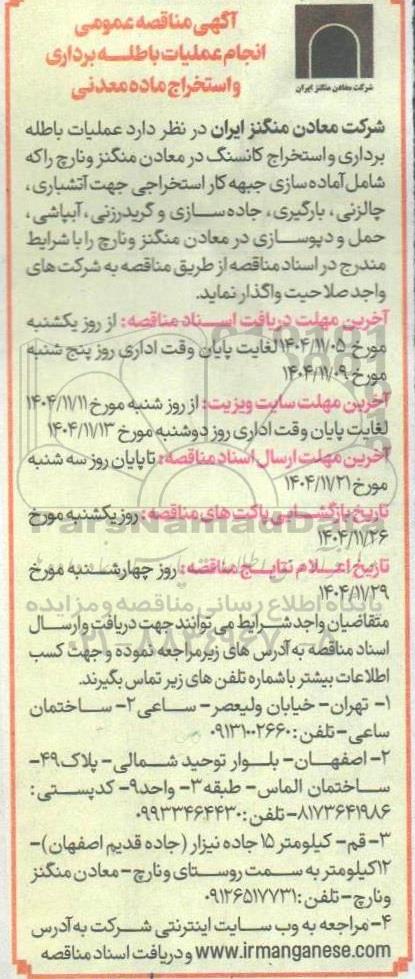 آگهی مناقصه عمومی
انجام عملیات باطله برداری
و استخراج ماده معدنی
شرکت معادن منگنز ایران
شرکت معادن منگنز ایران در نظر دارد عملیات باطله
برداری و استخراج کانسنگ در معادن منگنز ونارچ را که
شامل آماده سازی جبهه کار استخراجی جهت آتشباری،
چالزنی، بارگیری، جاده سازی و گریدرزنی، آبپاشی،
حمل و دپوسازی در معادن منگنز ونارچ را با شرایط
مندرج در اسناد مناقصه از طریق مناقصه به شرکت های
واجد صلاحیت واگذار نماید.
آخرین مهلت دریافت اسناد مناقصه: از روز یکشنبه
مورخ ۱۴۰۴/۱۱/۰۵ لغایت پایان وقت اداری روز پنج شنبه
مورخ ۱۴۰۴/۱۱/۰۹
آخرین مهلت سایت ویزیت: از روز شنبه مورخ ۱۴۰۴/۱۱/۱۱
لغایت پایان وقت اداری روز دوشنبه مورخ ۱۴۰۴/۱۱/۱۳
آخرین مهلت ارسال اسناد مناقصه: تا پایان روز سه شنبه
مورخ ۱۴۰۴/۱۱/۲۱
تاریخ بازگشایی پاکت های مناقصه: روز یکشنبه مورخ
۱۴۰۴/۱۱/۲۶
تاریخ اعلام نتایج مناقصه: روز چهارشنبه مورخ
۱۴۰۴/۱۱/۲۹
متقاضیان واجد شرایط می توانند جهت دریافت و ارسال
اسناد مناقصه به آدرس های زیر مراجعه نموده و جهت کسب
اطلاعات بیشتر با شماره تلفن های زیر تماس بگیرند.
۱- تهران- خیابان ولیعصر- ساعی ۲- ساختمان
ساعی- تلفن: ۰۹۱۳۱۰۰۲۶۶۰
۲- اصفهان- بلوار توحید شمالی- پلاک ۴۹-
ساختمان الماس- طبقه ۳- واحد ۹- کدپستی:
۸۱۷۳۶۴۱۹۸۶- تلفن: ۰۹۹۳۳۴۶۴۴۳۰
۳- قم- کیلومتر ۱۵ جاده نیزار (جاده قدیم اصفهان)-
۱۲ کیلومتر به سمت روستای ونارچ- معادن منگنز
ونارچ- تلفن: ۰۹۱۲۶۵۱۷۷۳۱
۴- مراجعه به وب سایت اینترنتی شرکت به آدرس
www.irmanganese.com و دریافت اسناد مناقصه
ParsNamadData
پایگاه اطلاع رسانی مناقصه و مزایده